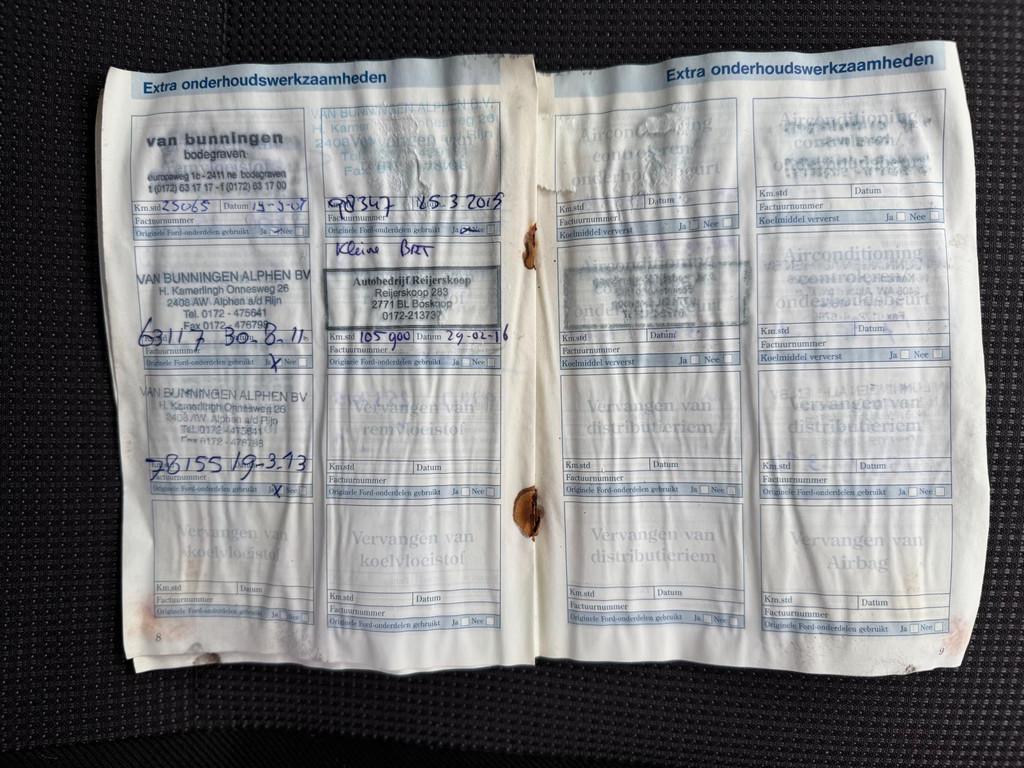 Extra onderhoudswerkzaamheden
van bunningen
bodegraven
europaweg 1c - 2411 ne bodegraven
t (0172) 63 17 17 - f (0172) 63 17 00
Km.std 25065 Datum
Factuurnummer
Originele Ford-onderdelen gebruikt Ja Nee
VAN BUNNINGEN ALPHEN BV
H. Kamerlingh Onnesweg 26
2408 AW Alphen a/d Rijn
Tel. 0172 - 475641
Fax 0172 - 476798
63117 30-8-11
Factuurnummer
Originele Ford-onderdelen gebruikt Ja Nee
VAN BUNNINGEN ALPHEN BV
H. Kamerlingh Onnesweg 26
2408 AW Alphen a/d Rijn
Tel. 0172 - 475641
78155 19-3-13
Factuurnummer
Originele Ford-onderdelen gebruikt Ja Nee
Vervangen van
koelvloeistof
Km.std Datum
Factuurnummer
Originele Ford-onderdelen gebruikt Ja Nee
8
VAN BUNNINGEN ALPHEN B.V.
H. Kamerlingh Onnesweg 26
2408 AW Alphen a/d Rijn
98347 25.3 2015
Factuurnummer
Originele Ford-onderdelen gebruikt Ja
Kleine BRT
Autobedrijf Reijerskoop
Reijerskoop 283
2771 BL Boskoop
0172-213737
Km.std 105900 Datum 29-02-16
Factuurnummer
Originele Ford-onderdelen gebruikt Ja Nee
Vervangen van
remvloeistof
Km.std Datum
Factuurnummer
Originele Ford-onderdelen gebruikt Ja Nee
Vervangen van
koelvloeistof
Km.std Datum
Factuurnummer
Originele Ford-onderdelen gebruikt Ja Nee
Extra onderhoudswerkzaamheden
Airconditioning
controleren/
onderhoudsbeurt
Km.std Datum
Factuurnummer
Koelmiddel ververst Ja Nee
Airconditioning
Km.std Datum
Factuurnummer
Koelmiddel ververst Ja Nee
Vervangen van
distributieriem
Km.std Datum
Factuurnummer
Originele Ford-onderdelen gebruikt Ja Nee
Vervangen van
distributieriem
Km.std Datum
Factuurnummer
Originele Ford-onderdelen gebruikt Ja Nee
Airconditioning
controleren/
onderhoudsbeurt
Km.std Datum
Factuurnummer
Koelmiddel ververst Ja Nee
Airconditioning
controleren/
onderhoudsbeurt
Km.std Datum
Factuurnummer
Koelmiddel ververst Ja Nee
Vervangen van
distributieriem
Km.std Datum
Factuurnummer
Originele Ford-onderdelen gebruikt Ja Nee
Vervangen van
Airbag
Km.std Datum
Factuurnummer
Originele Ford-onderdelen gebruikt Ja Nee
9